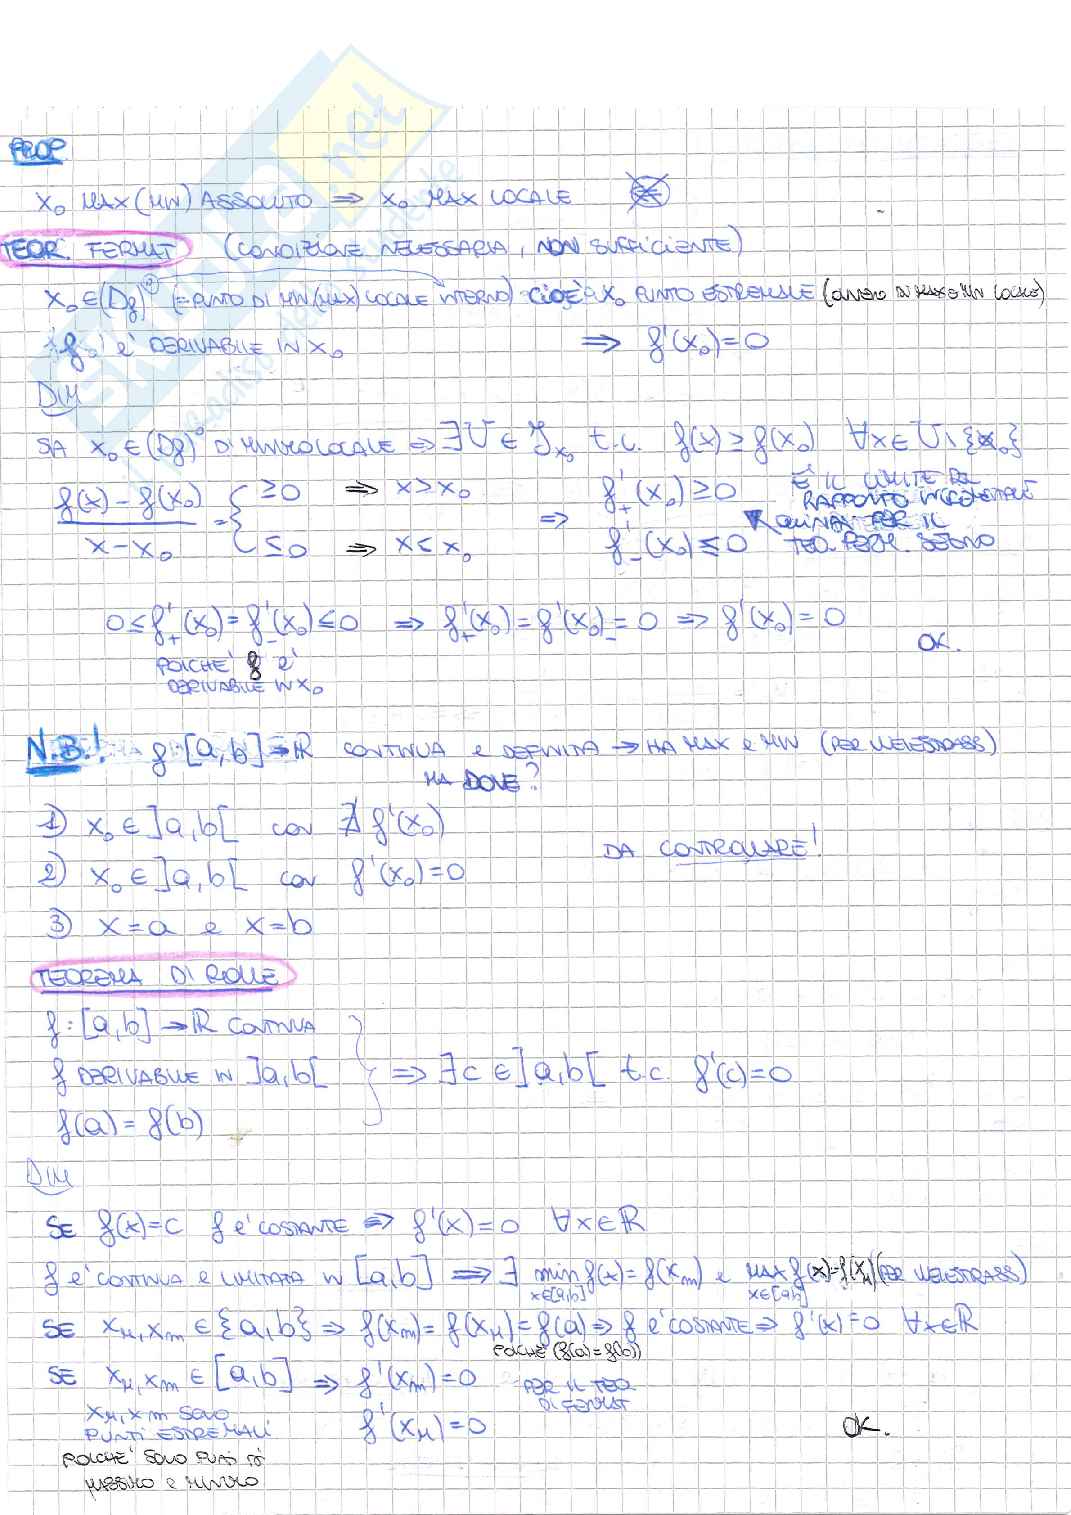 PROP
x₀ MAX (MIN) ASSOLUTO ⇒ x₀ MAX LOCALE
TEOR. FERMAT (CONDIZIONE NECESSARIA, NON SUFFICIENTE)
x₀ ∈ (Df)° (= PUNTO DI MIN (MAX) LOCALE INTERNO) CIOÈ x₀ PUNTO ESTREMALE (OVVERO DI MAX E MIN LOCALE)
f è DERIVABILE IN x₀ ⇒ f'(x₀)=0
DIM
SIA x₀ ∈ (Df)° DI MINIMO LOCALE ⇒ ∃U ∈ 𝒥x₀ t.c. f(x) ≥ f(x₀) ∀x ∈ U\{x₀}
(f(x) - f(x₀)) / (x - x₀) = { ≥0 ⇒ x>x₀ ⇒ f'₊(x₀) ≥ 0
≤0 ⇒ x<x₀ f'₋(x₀) ≤ 0
È IL LIMITE DEL
RAPPORTO INCREMENTALE
QUINDI PER IL
TEO. PERM. SEGNO
0 ≤ f'₊(x₀) = f'₋(x₀) ≤ 0 ⇒ f'₊(x₀) = f'(x₀)₋ = 0 ⇒ f'(x₀) = 0
OK.
POICHÈ f è
DERIVABILE IN x₀
N.B.! f [a,b] → ℝ CONTINUA e DEFINITA → HA MAX e MIN (PER WEIESTRASS)
MA DOVE?
1) x₀ ∈ ]a,b[ con ∄ f'(x₀)
DA CONTROLLARE!
2) x₀ ∈ ]a,b[ con f'(x₀)=0
3) x=a e x=b
TEOREMA DI ROLLE
f: [a,b] → ℝ CONTINUA
f DERIVABILE IN ]a,b[ } ⇒ ∃c ∈ ]a,b[ t.c. f'(c)=0
f(a) = f(b)
DIM
SE f(x)=c f è COSTANTE ⇒ f'(x)=0 ∀x∈ℝ
f è CONTINUA E LIMITATA IN [a,b] ⇒ ∃ min f(x) = f(xm) e MAX f(x) = f(xM) (PER WEIESTRASS)
x∈[a,b] x∈[a,b]
SE xM, xm ∈ {a,b} ⇒ f(xm) = f(xM) = f(a) ⇒ f è COSTANTE ⇒ f'(x)=0 ∀x∈ℝ
POICHÈ (f(a)=f(b))
SE xM, xm ∈ [a,b] ⇒ f'(xm)=0 PER IL TEO.
DI FERMAT
xM, xm SONO f'(xM)=0
PUNTI ESTREMALI
OK.
POICHÈ SONO PUNTI DI
MASSIMO e MINIMO